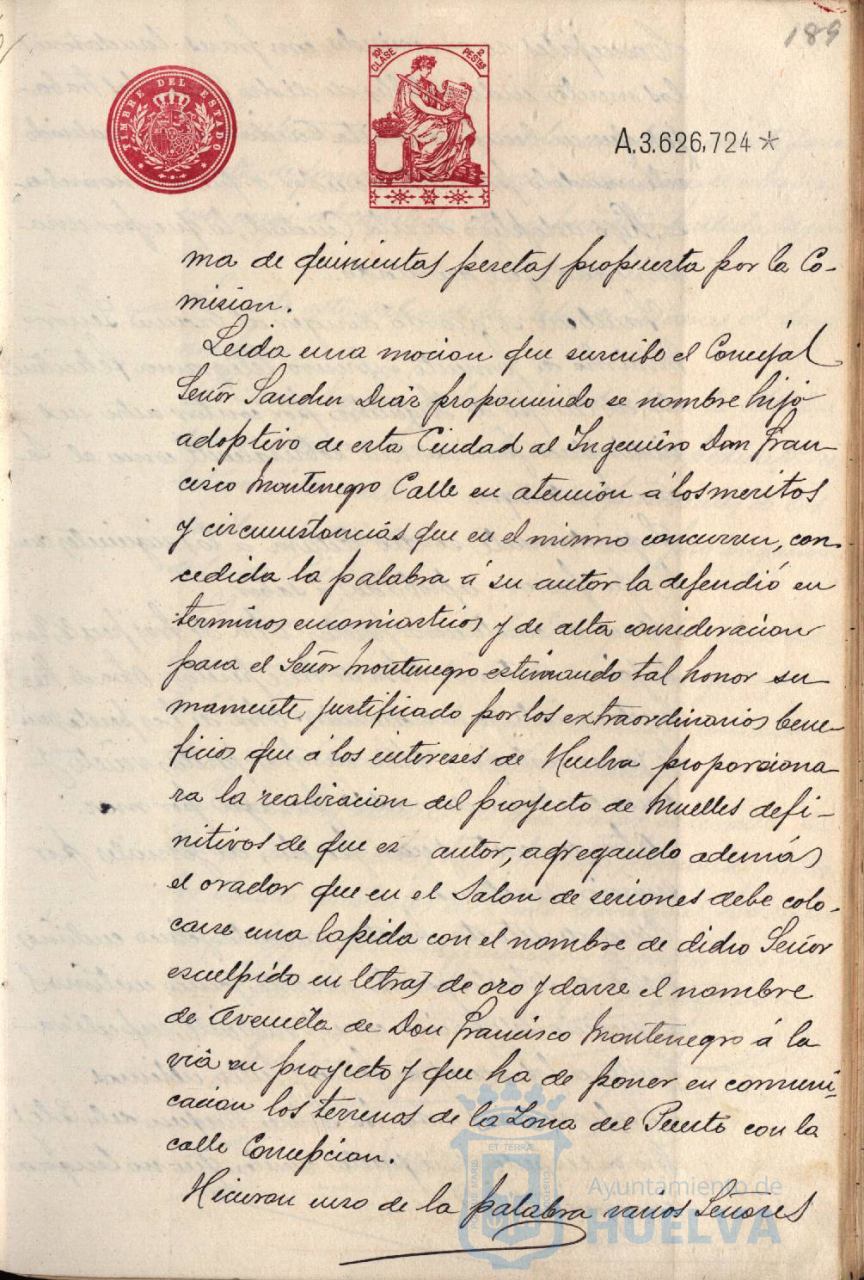 189
TIMBRE DEL ESTADO
10ª CLASE 2 PESTAS
A.3.626,724*
ma de quinientas pesetas propuesta por la Co-
mision.
Leida una mocion que suscribe el Concejal
Señor Sanchez Diaz proponiendo se nombre hijo
adoptivo de esta Ciudad al Ingeniero Don Fran-
cisco Montenegro Calle en atencion á los meritos
y circunstancias que en el mismo concurren, con-
cedida la palabra á su autor la defendió en
terminos encomiasticos y de alta consideracion
para el Señor Montenegro estimando tal honor su
mamente justificado por los extraordinarios bene-
ficios que á los intereses de Huelva proporciona-
ra la realizacion del proyecto de Muelles defi-
nitivos de que es autor, agregando además
el orador que en el Salon de sesiones debe colo-
carse una lapida con el nombre de dicho Señor
esculpido en letras de oro y darse el nombre
de Avenida de Don Francisco Montenegro á la
via en proyecto y que ha de poner en comuni-
cacion los terrenos de la Zona del Puerto con la
calle Concepcion.
Hicieron uso de la palabra varios Señores
Ayuntamiento de
HUELVA